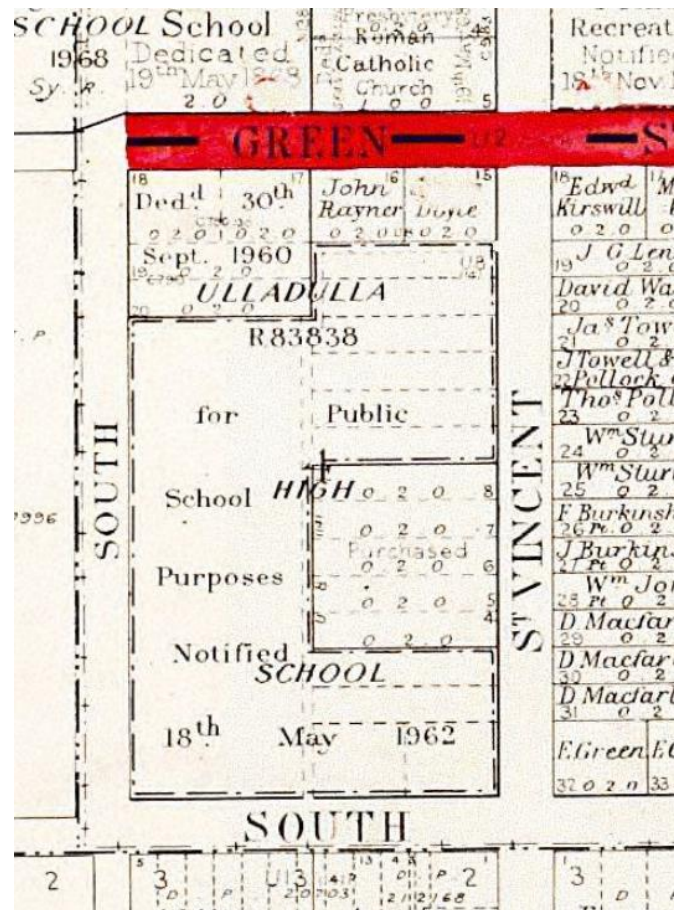 SCHOOL School
1968 Dedicated
19th May 1868
Sy. R.
2.0
Presbytery
Roman
Catholic
Church
1 0 0
5
19th May
Recreat
Notified
18th Nov.
GREEN
U12
ST
18
17
16
15
Dedd 30th
0 2 0 0 2 0
Sept. 1960
19 0 2 0
20 0 2 0
John
Rayner
Doyle
0 2 0
0 2 0
ULLADULLA
R83838
for Public
School
HIGH
Purposes
Notified
SCHOOL
18th May 1962
0 2 0 8
0 2 0 7
Purchased
0 2 0 6
0 2 0 5
0 2 0 4
SOUTH
ST VINCENT
SOUTH
7996
18 Edwd
Kirswill
0 2 0
17
J G Len
19 0 2 0
David Wa
20 0 2 0
Jas Tow
21 0 2
J Towell &
22 Pollock
Thos Poll
23 0 2
Wm Stur
24 0 2
Wm Stur
25 0 2
F Burkinsh
26 Pt. 0 2
J Burkins
27 Pt 0 2
Wm Jo
28 Pt 0 2
D Macfar
29 0 2
D Macfar
30 0 2
D Macfarl
31 0 2
E Green
32 0 2 0
33
2
5
3
D P
U13
207103
13
4
3
D P
212168
2
3
D P